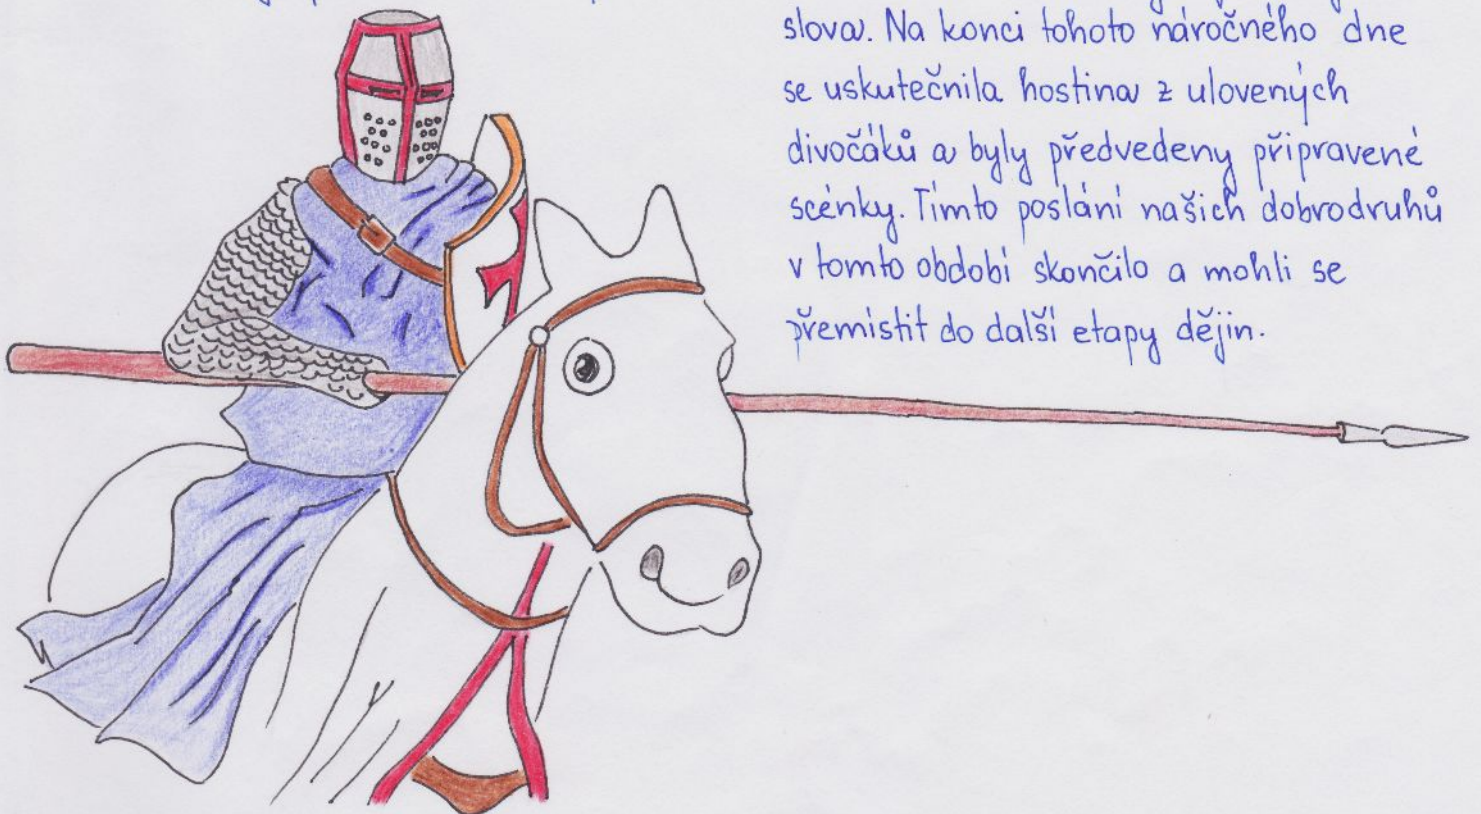 slova. Na konci tohoto náročného dne
se uskutečnila hostina z ulovených
divočáků a byly předvedeny připravené
scénky. Tímto poslání našich dobrodruhů
v tomto období skončilo a mohli se
přemístit do další etapy dějin.